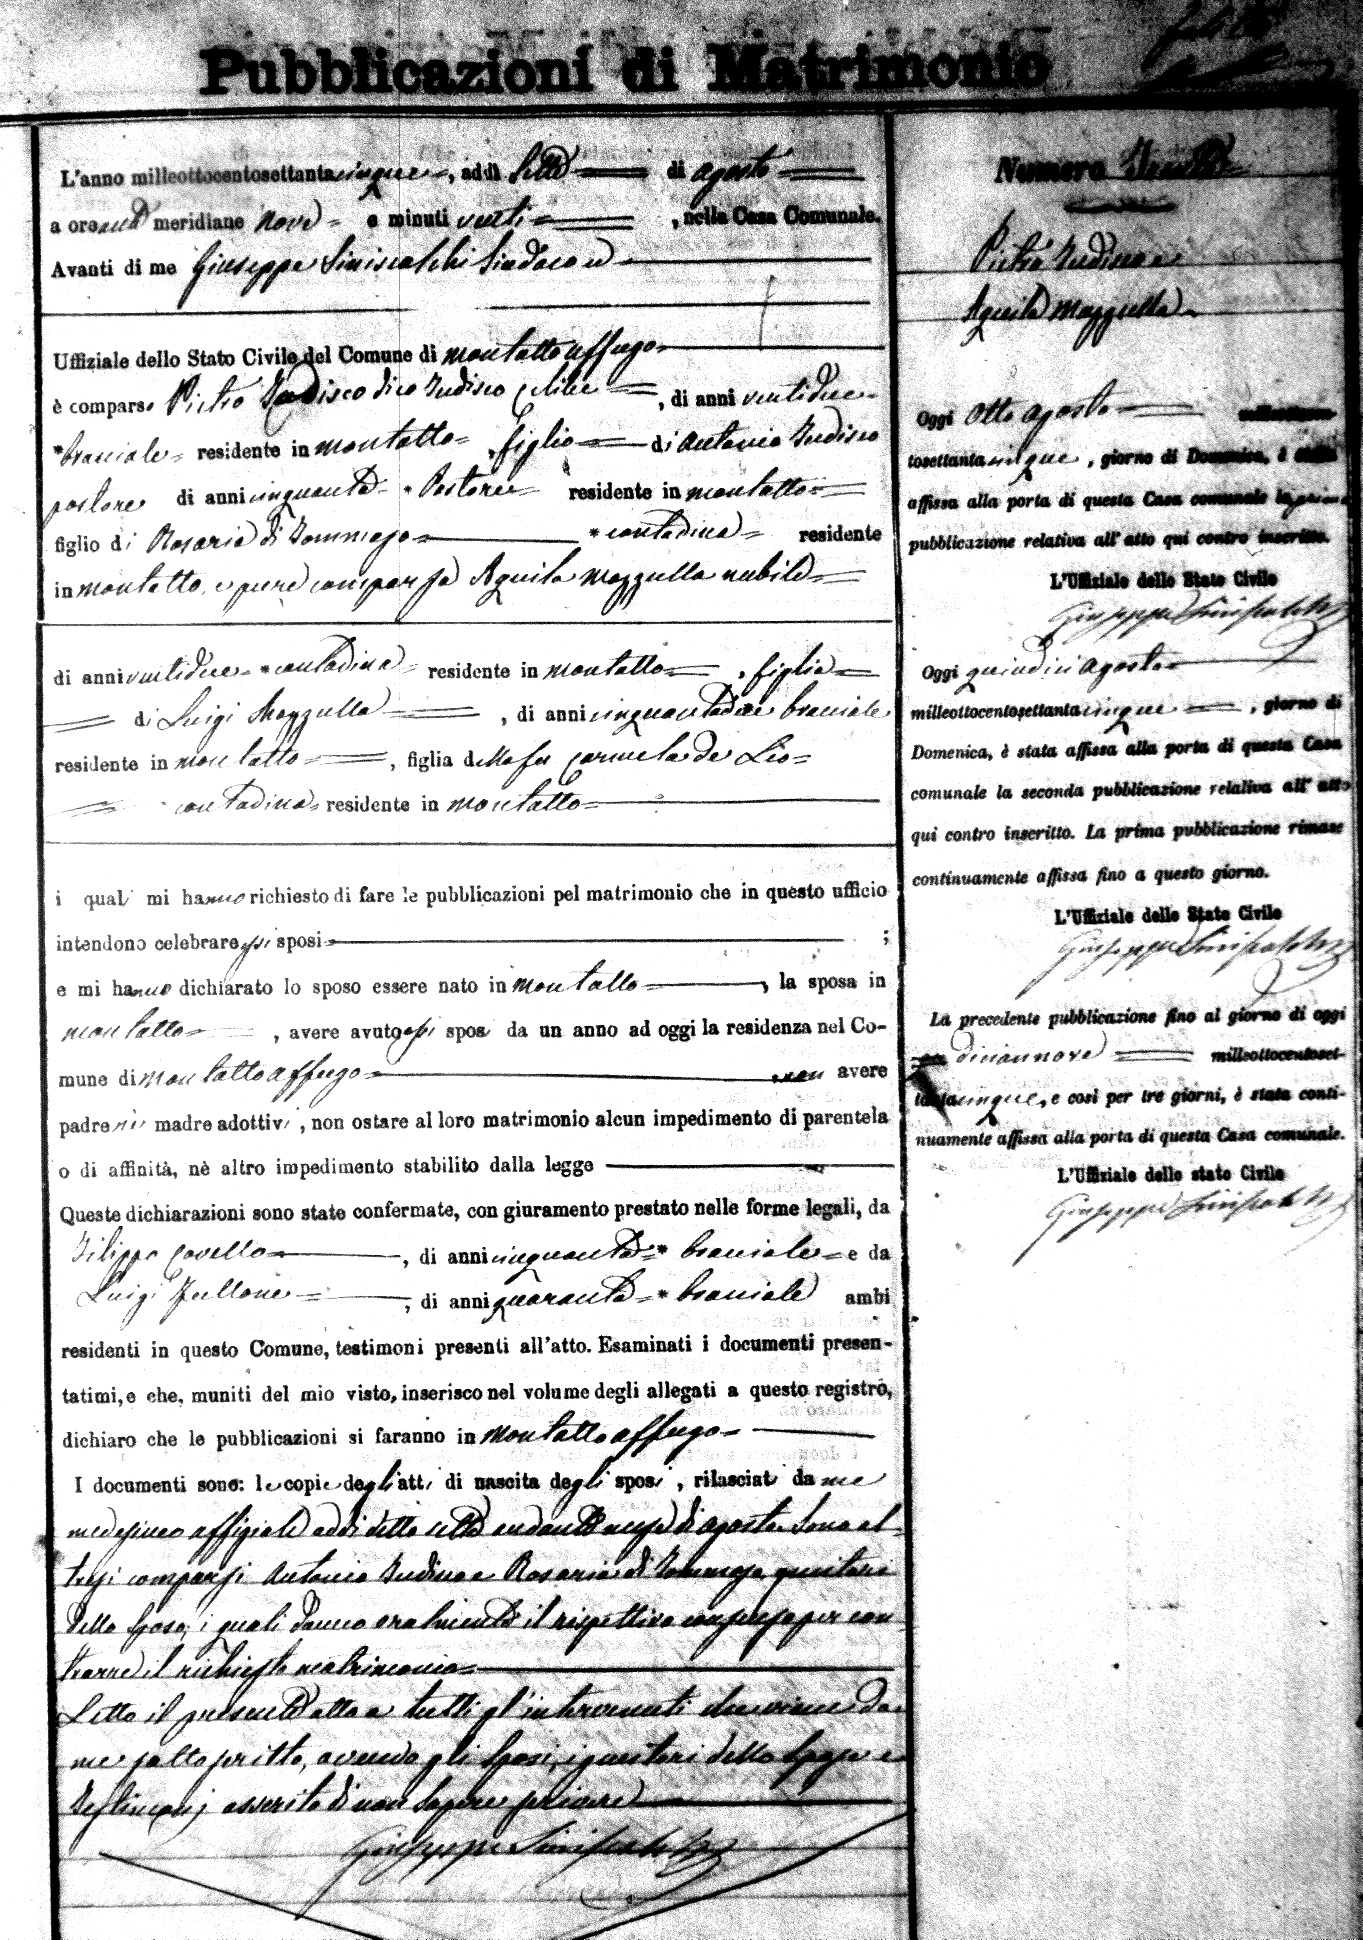 Pubblicazioni di Matrimonio
L'anno milleottocentosettantacinque, addì sette di agosto
a ore anti meridiane nove e minuti venti, nella Casa Comunale.
Avanti di me Giuseppe Siniscalchi Sindaco ed
Uffiziale dello Stato Civile del Comune di Montalto Uffugo
è comparso Pietro dico Iudisco celibe, di anni ventidue
*bracciale residente in Montalto, figlio di Antonio Iudisco
pastore di anni cinquanta *Pastore residente in Montalto
figlio di Rosaria di Tommaso *contadina residente
in Montalto, e pure comparsa Aquila Mazzulla nubile
di anni ventidue *contadina residente in Montalto, figlia
di Luigi Mazzulla, di anni bracciale
residente in Montalto, figlia della fu Carmela de Lio
contadina residente in Montalto
i quali mi hanno richiesto di fare le pubblicazioni pel matrimonio che in questo ufficio
intendono celebrare essi sposi ;
e mi hanno dichiarato lo sposo essere nato in Montalto, la sposa in
Montalto, avere avuto essi sposi da un anno ad oggi la residenza nel Co-
mune di Montalto Uffugo, non avere
padre nè madre adottivi, non ostare al loro matrimonio alcun impedimento di parentela
o di affinità, nè altro impedimento stabilito dalla legge
Queste dichiarazioni sono state confermate, con giuramento prestato nelle forme legali, da
Filippo Covello, di anni cinquanta *bracciale e da
Luigi Fullone, di anni quaranta *bracciale ambi
residenti in questo Comune, testimoni presenti all'atto. Esaminati i documenti presen-
tatimi, e che, muniti del mio visto, inserisco nel volume degli allegati a questo registro,
dichiaro che le pubblicazioni si faranno in Montalto Uffugo
I documenti sono: le copie degli atti di nascita degli sposi, rilasciati da me
medesimo uffiziale addì detto sette andante mese di agosto. Sono al-
tresì comparsi Antonio Iudisco e Rosaria di Tommaso genitori
dello sposo, i quali danno oralmente il rispettivo consenso per con
trarre il richiesto matrimonio
Letto il presente atto a tutti gl'intervenuti che viene da
me sottoscritto, avendo gli sposi, i genitori dello sposo e
Testimonj asserito di non sapere scrivere
Giuseppe Siniscalchi
Numero
Pietro Iudisco e
Aquila Mazzulla
Oggi otto agosto milleottocen-
tosettantacinque, giorno di Domenica, è stata
affissa alla porta di questa Casa comunale la prima
pubblicazione relativa all'atto qui contro inscritto.
L'Uffiziale dello Stato Civile
Giuseppe Siniscalchi
Oggi quindici agosto
milleottocentosettantacinque, giorno di
Domenica, è stata affissa alla porta di questa Casa
comunale la seconda pubblicazione relativa all'atto
qui contro inscritto. La prima pubblicazione rimase
continuamente affissa fino a questo giorno.
L'Uffiziale dello Stato Civile
Giuseppe Siniscalchi
La precedente pubblicazione fino al giorno di oggi
diciannove milleottocentoset-
tantacinque, e così per tre giorni, è stata conti-
nuamente affissa alla porta di questa Casa comunale.
L'Uffiziale dello stato Civile
Giuseppe Siniscalchi